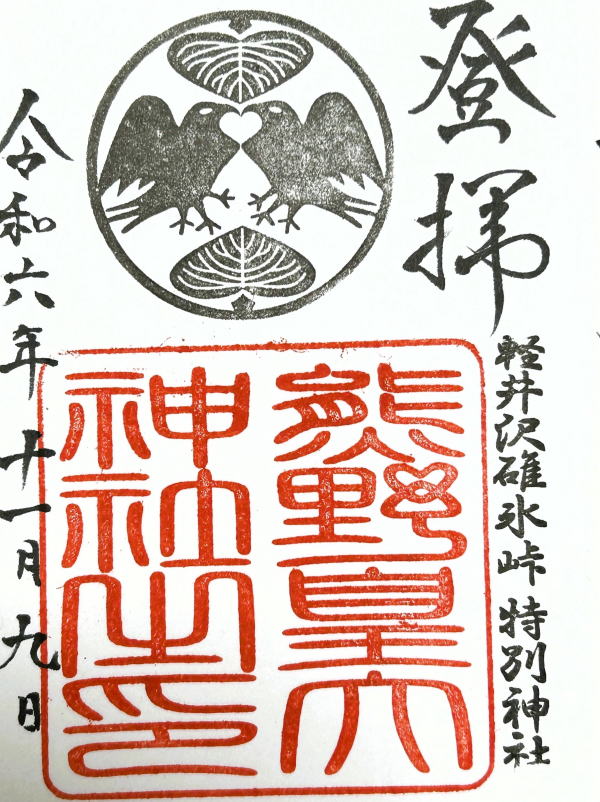 登拝
軽井沢碓氷峠 特別神社
熊野皇大
神社之印
令和六年 十一月九日